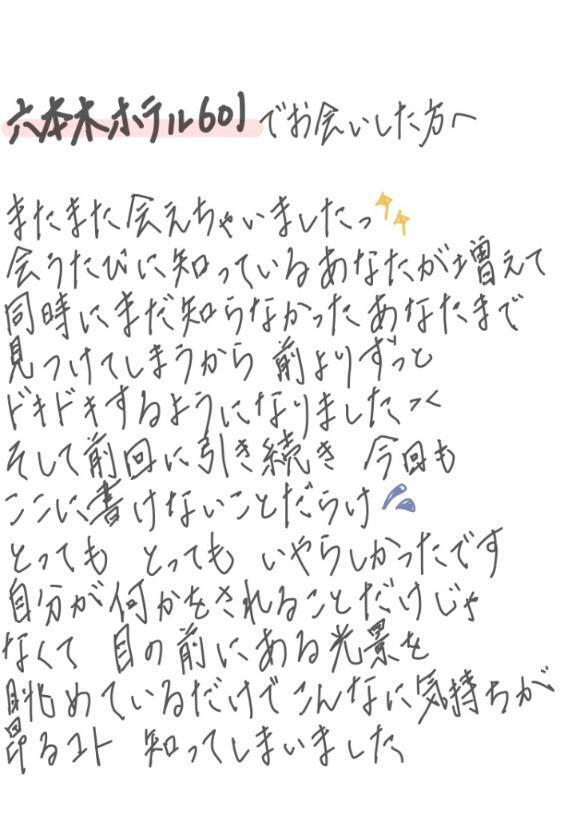 六本木ホテル601でお会いした方へ
またまた会えちゃいましたっ
会うたびに知っているあなたが増えて
同時にまだ知らなかったあなたまで
見つけてしまうから 前よりずっと
ドキドキするようになりました
そして前回に引き続き 今回も
ここに書けないことだらけ
とっても とっても いやらしかったです
自分が何かをされることだけじゃ
なくて 目の前にある光景を
眺めているだけでこんなに気持ちが
昂るコト 知ってしまいました